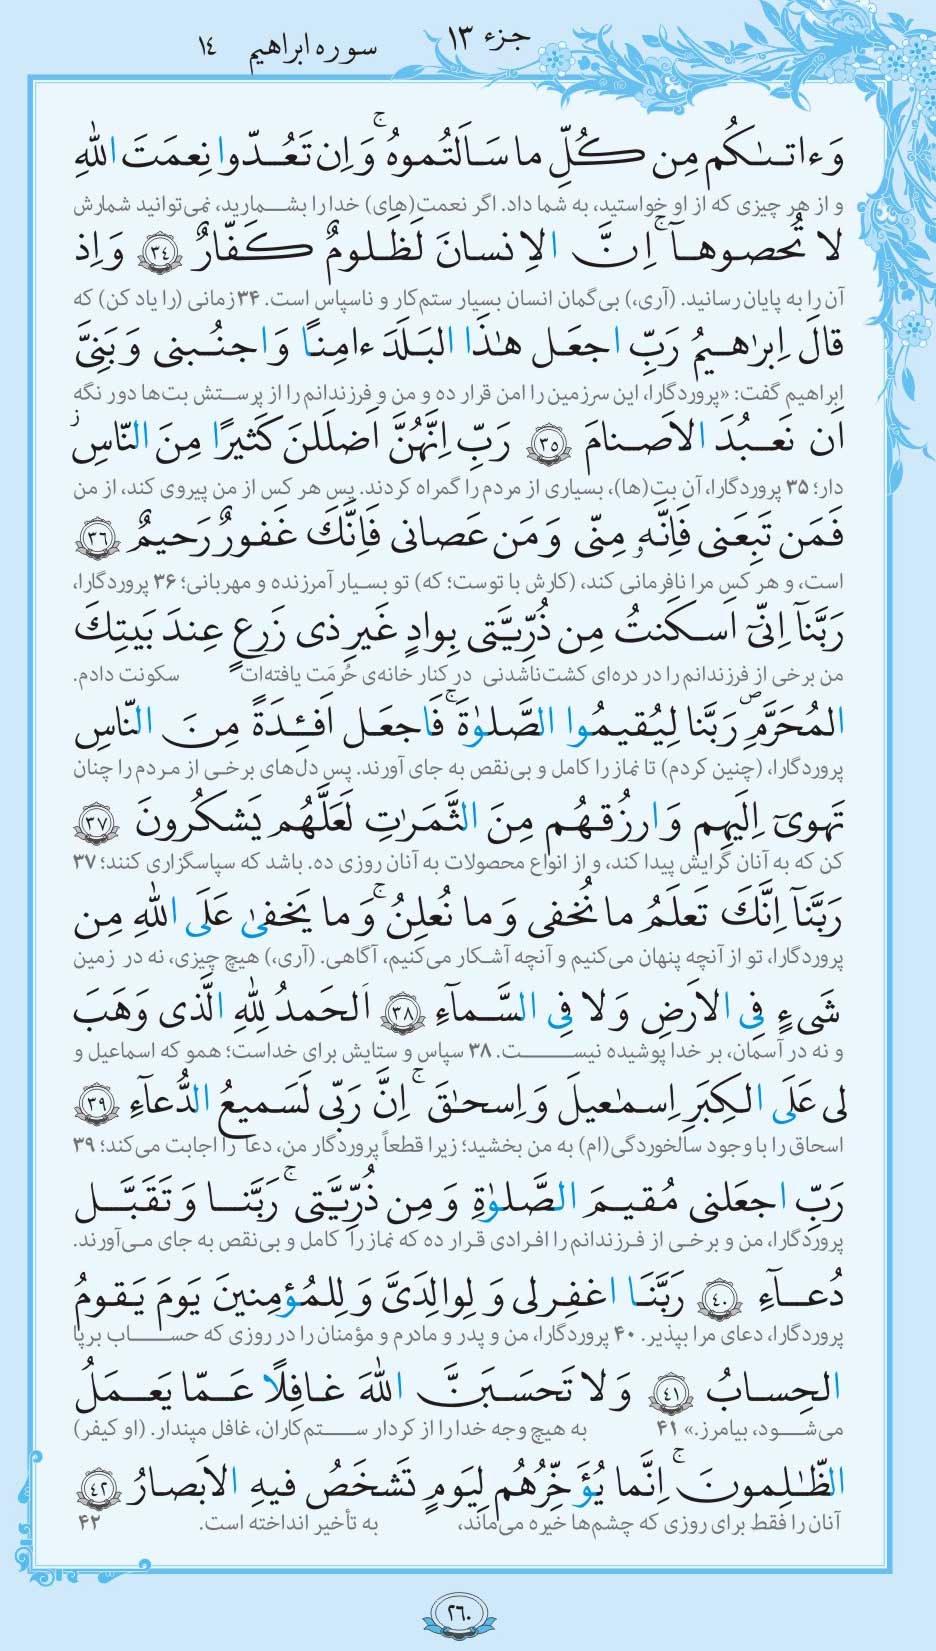 جزء ۱۳
سوره ابراهیم ۱٤
وَءاتىٰكُم مِن كُلِّ ما سَاَلتُموهُ ۚ وَ اِن تَعُدّوا نِعمَتَ اللهِ
و از هر چیزی که از او خواستید، به شما داد. اگر نعمت(های) خدا را بشمارید، نمی‌توانید شمارش
لا تُحصوهاۤ ۚ اِنَّ الاِنسانَ لَظَلومٌ كَفّارٌ ﴿٣٤﴾ وَ اِذ
آن را به پایان رسانید. (آری،) بی‌گمان انسان بسیار ستم‌کار و ناسپاس است. ۳۴ زمانی (را یاد کن) که
قالَ اِبرٰهيمُ رَبِّ اجعَل هٰذَا البَلَدَ ءامِنًا وَ اجنُبنى وَ بَنِىَّ
ابراهیم گفت: «پروردگارا، این سرزمین را امن قرار ده و من و فرزندانم را از پرستش بت‌ها دور نگه
اَن نَعبُدَ الاَصنامَ ﴿٣٥﴾ رَبِّ اِنَّهُنَّ اَضلَلنَ كَثيرًا مِنَ النّاسِ ز
دار؛ ۳۵ پروردگارا، آن بت(ها)، بسیاری از مردم را گمراه کردند. پس هر کس از من پیروی کند، از من
فَمَن تَبِعَنى فَاِنَّهو مِنّى وَ مَن عَصانى فَاِنَّكَ غَفورٌ رَحيمٌ ﴿٣٦﴾
است، و هر کس مرا نافرمانی کند، (کارش با توست؛ که) تو بسیار آمرزنده و مهربانی؛ ۳۶ پروردگارا،
رَبَّناۤ اِنّىۤ اَسكَنتُ مِن ذُرِّيَّتى بِوادٍ غَيرِ ذى زَرعٍ عِندَ بَيتِكَ
من برخی از فرزندانم را در دره‌ای کشت‌ناشدنی در کنار خانه‌ی حُرمَت یافته‌ات سکونت دادم.
المُحَرَّمِ ۙ رَبَّنا لِيُقيمُوا الصَّلوٰةَ ۚ فَاجعَل اَفئِدَةً مِنَ النّاسِ
پروردگارا، (چنین کردم) تا نماز را کامل و بی‌نقص به جای آورند. پس دل‌های برخی از مردم را چنان
تَهوىۤ اِلَيهِم وَ ارزُقهُم مِنَ الثَّمَرٰتِ لَعَلَّهُم يَشكُرونَ ﴿٣٧﴾
کن که به آنان گرایش پیدا کند، و از انواع محصولات به آنان روزی ده. باشد که سپاسگزاری کنند؛ ۳۷
رَبَّناۤ اِنَّكَ تَعلَمُ ما نُخفى وَ ما نُعلِنُ ۚ وَ ما يَخفىٰ عَلَى اللهِ مِن
پروردگارا، تو از آنچه پنهان می‌کنیم و آنچه آشکار می‌کنیم، آگاهی. (آری،) هیچ چیزی، نه در زمین
شَىءٍ فِى الاَرضِ وَ لا فِى السَّماۤءِ ﴿٣٨﴾ اَلحَمدُ لِلّٰهِ الَّذى وَهَبَ
و نه در آسمان، بر خدا پوشیده نیست. ۳۸ سپاس و ستایش برای خداست؛ همو که اسماعیل و
لى عَلَى الكِبَرِ اِسمٰعيلَ وَ اِسحٰقَ ۚ اِنَّ رَبّى لَسَميعُ الدُّعاۤءِ ﴿٣٩﴾
اسحاق را با وجود سالخوردگی(ام) به من بخشید؛ زیرا قطعاً پروردگار من، دعا را اجابت می‌کند؛ ۳۹
رَبِّ اجعَلنى مُقيمَ الصَّلوٰةِ وَ مِن ذُرِّيَّتى ۚ رَبَّنا وَ تَقَبَّل
پروردگارا، من و برخی از فرزندانم را افرادی قرار ده که نماز را کامل و بی‌نقص به جای می‌آورند.
دُعاۤءِ ﴿٤٠﴾ رَبَّنَا اغفِرلى وَ لِوالِدَىَّ وَ لِلمُؤمِنينَ يَومَ يَقومُ
پروردگارا، دعای مرا بپذیر. ۴۰ پروردگارا، من و پدر و مادرم و مؤمنان را در روزی که حساب برپا
الحِسابُ ﴿٤١﴾ وَ لا تَحسَبَنَّ اللهَ غافِلًا عَمّا يَعمَلُ
می‌شود، بیامرز.» ۴۱ به هیچ وجه خدا را از کردار ستم‌کاران، غافل مپندار. (او کیفر)
الظّٰلِمونَ ۚ اِنَّما يُؤَخِّرُهُم لِيَومٍ تَشخَصُ فيهِ الاَبصارُ ﴿٤٢﴾
آنان را فقط برای روزی که چشم‌ها خیره می‌ماند، به تأخیر انداخته است. ۴۲
٢٦٠